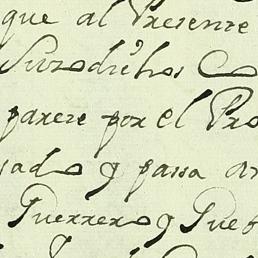 que al Presente
Suzodichos
parece por el Pro
sado q passa an
Guerrero q Pueb